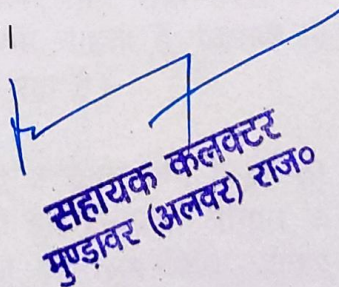 ।
सहायक कलक्टर
मुण्डावर (अलवर) राज०